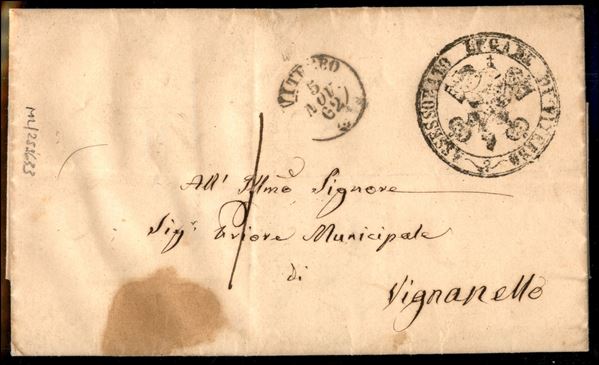 VITERBO
5
NOV
62
ASSESSORATO LEGALE DI VITERBO
All' Illmõ Signore
Sigr. Priore Municipale
di
Vignanello